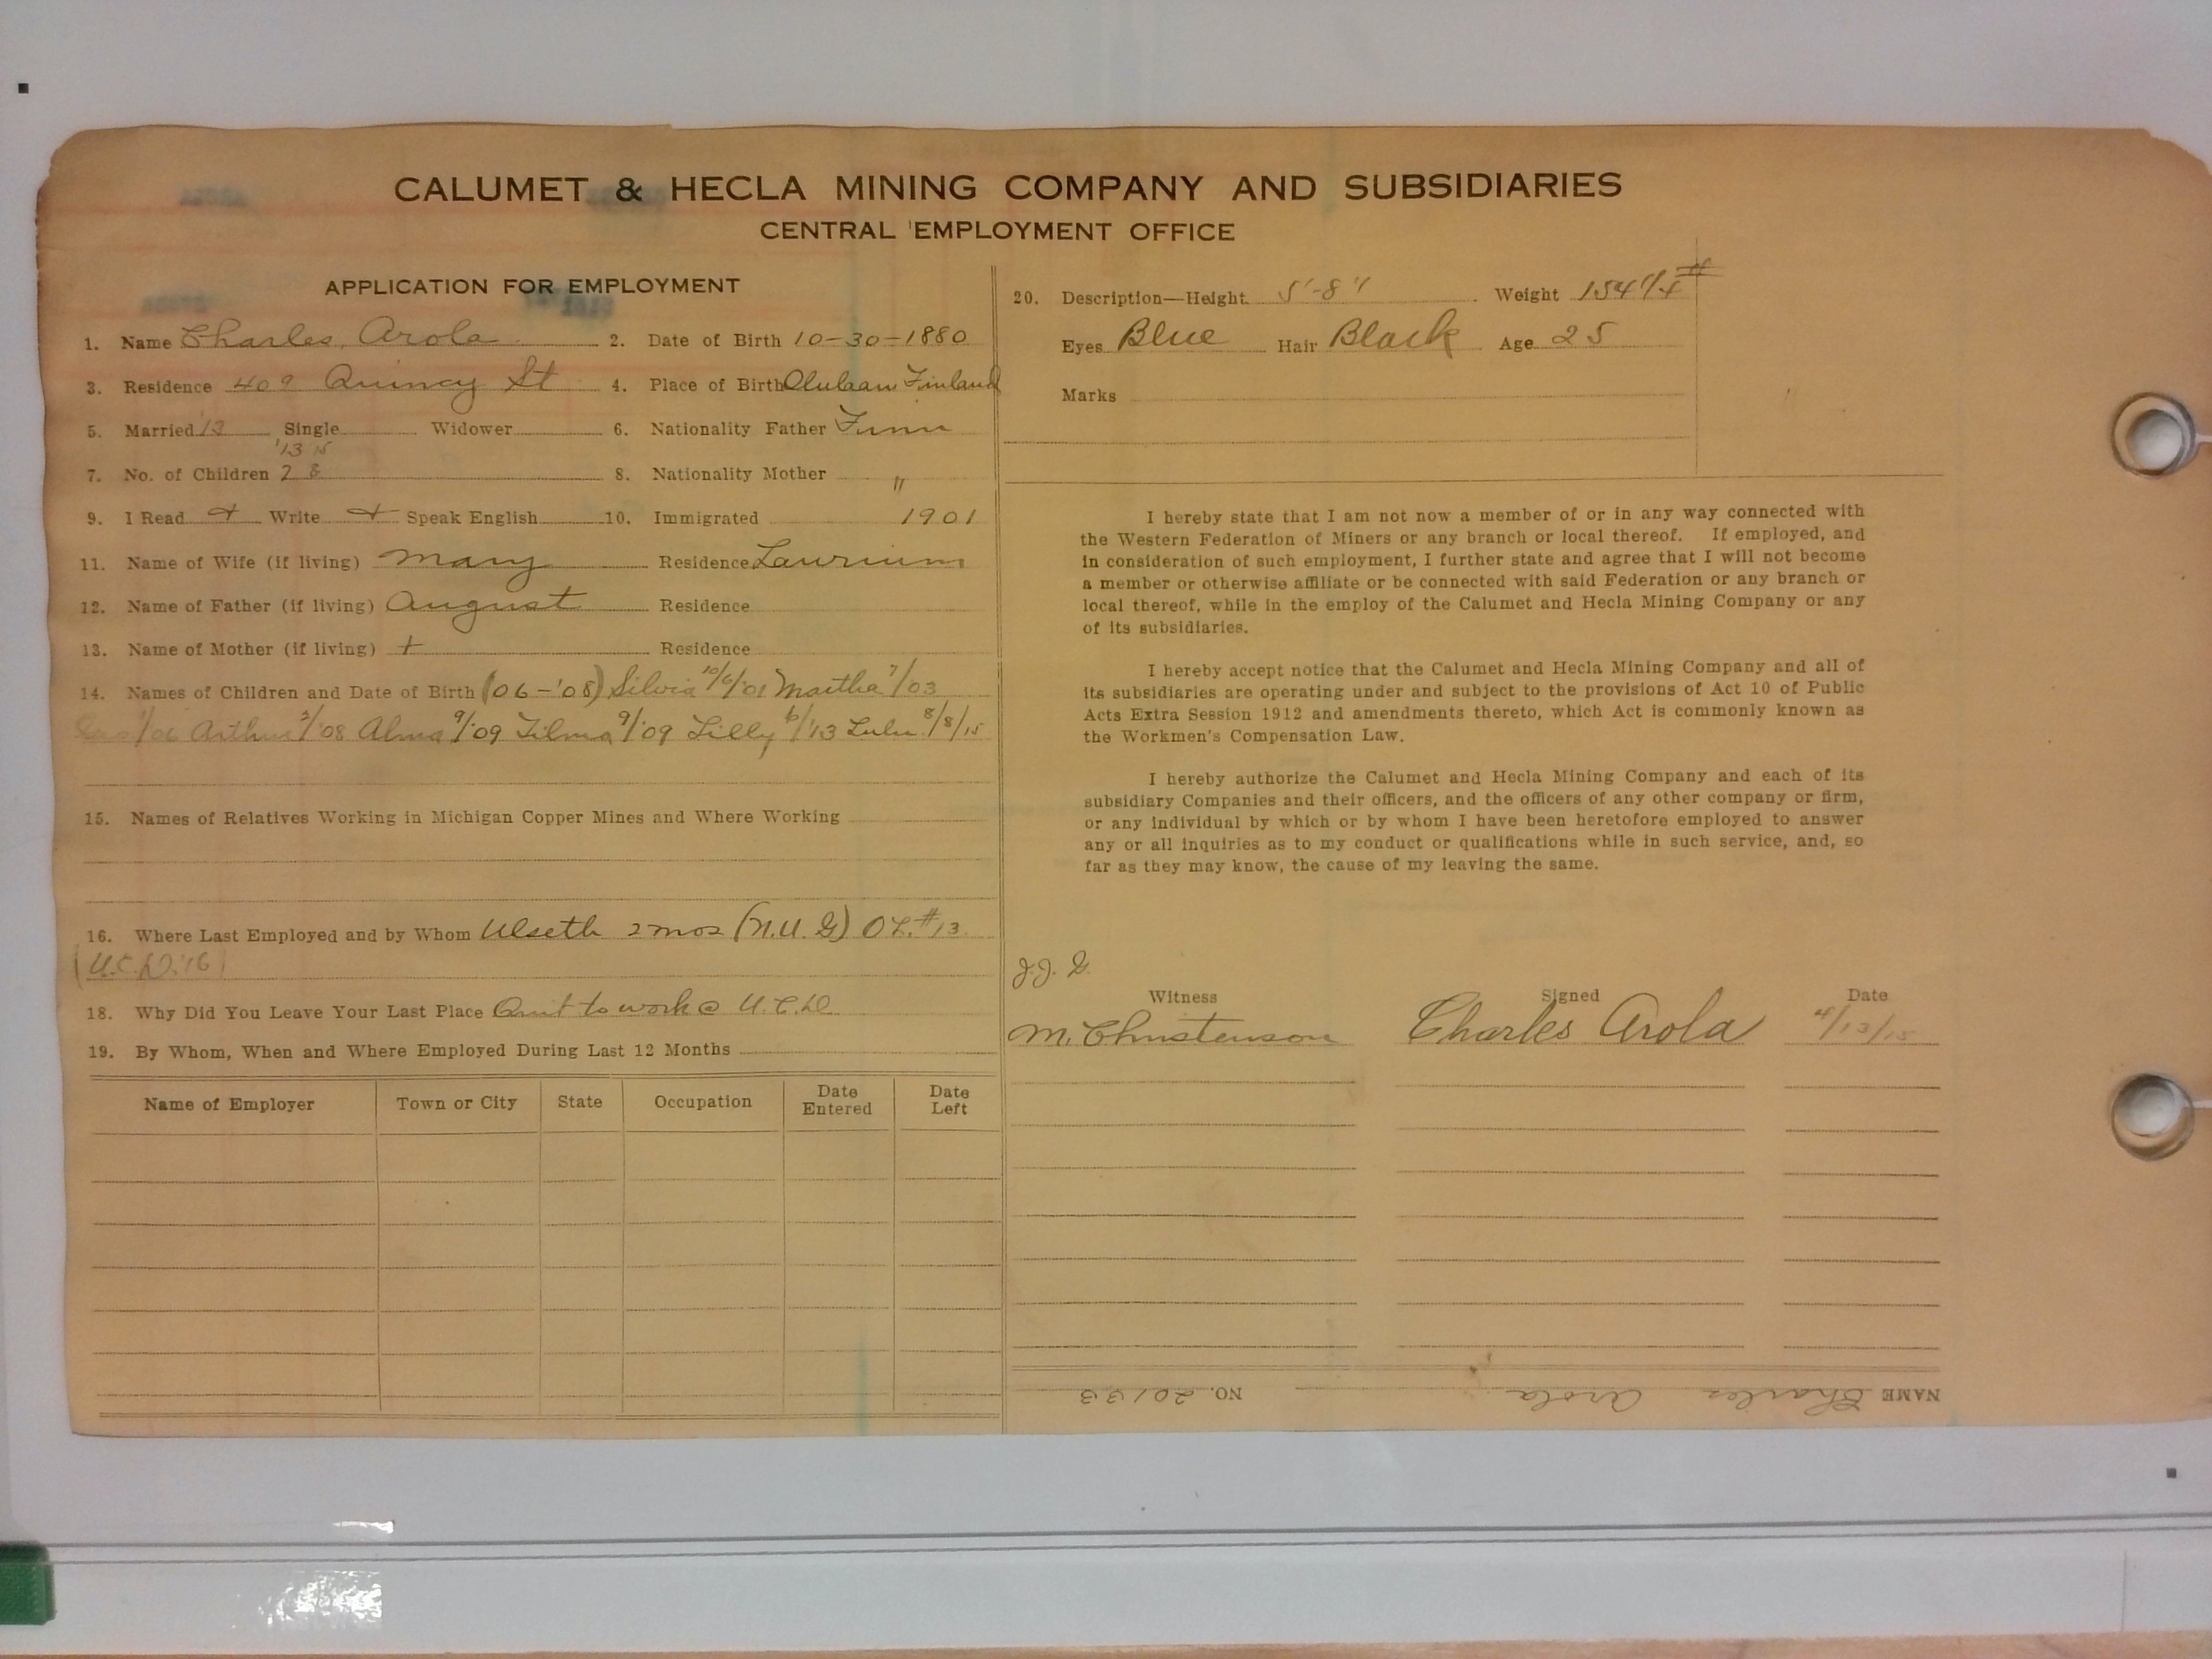 CALUMET & HECLA MINING COMPANY AND SUBSIDIARIES
CENTRAL EMPLOYMENT OFFICE
APPLICATION FOR EMPLOYMENT
1. Name Charles Arola 2. Date of Birth 10-30-1880
3. Residence 409 Quincy St 4. Place of Birth Finland
5. Married '13 Single Widower 6. Nationality Father Finn
'13 15
7. No. of Children 2 8 8. Nationality Mother "
9. I Read + Write + Speak English 10. Immigrated 1901
11. Name of Wife (if living) Mary Residence Laurium
12. Name of Father (if living) August Residence
13. Name of Mother (if living) + Residence
14. Names of Children and Date of Birth (06-'08) Silvia 10/6/'01 Martha 7/03
Arthur 2/'08 Alma 9/'09 Tilma 9/'09 Lilly 6/'13 Lulu 8/8/15
15. Names of Relatives Working in Michigan Copper Mines and Where Working
16. Where Last Employed and by Whom Ulseth 2 mos (N.U.G) OL. #13
(U.C.D. '16)
18. Why Did You Leave Your Last Place Quit to work @ U.C.D
19. By Whom, When and Where Employed During Last 12 Months
Name of Employer Town or City State Occupation Date Entered Date Left
20. Description—Height 5'-8" Weight 154 1/4 #
Eyes Blue Hair Black Age 25
Marks
I hereby state that I am not now a member of or in any way connected with
the Western Federation of Miners or any branch or local thereof. If employed, and
in consideration of such employment, I further state and agree that I will not become
a member or otherwise affiliate or be connected with said Federation or any branch or
local thereof, while in the employ of the Calumet and Hecla Mining Company or any
of its subsidiaries.
I hereby accept notice that the Calumet and Hecla Mining Company and all of
its subsidiaries are operating under and subject to the provisions of Act 10 of Public
Acts Extra Session 1912 and amendments thereto, which Act is commonly known as
the Workmen's Compensation Law.
I hereby authorize the Calumet and Hecla Mining Company and each of its
subsidiary Companies and their officers, and the officers of any other company or firm,
or any individual by which or by whom I have been heretofore employed to answer
any or all inquiries as to my conduct or qualifications while in such service, and, so
far as they may know, the cause of my leaving the same.
J.J. G.
Witness Signed Date
M. Christenson Charles Arola 4/13/15
NAME Charles Arola NO. 20133